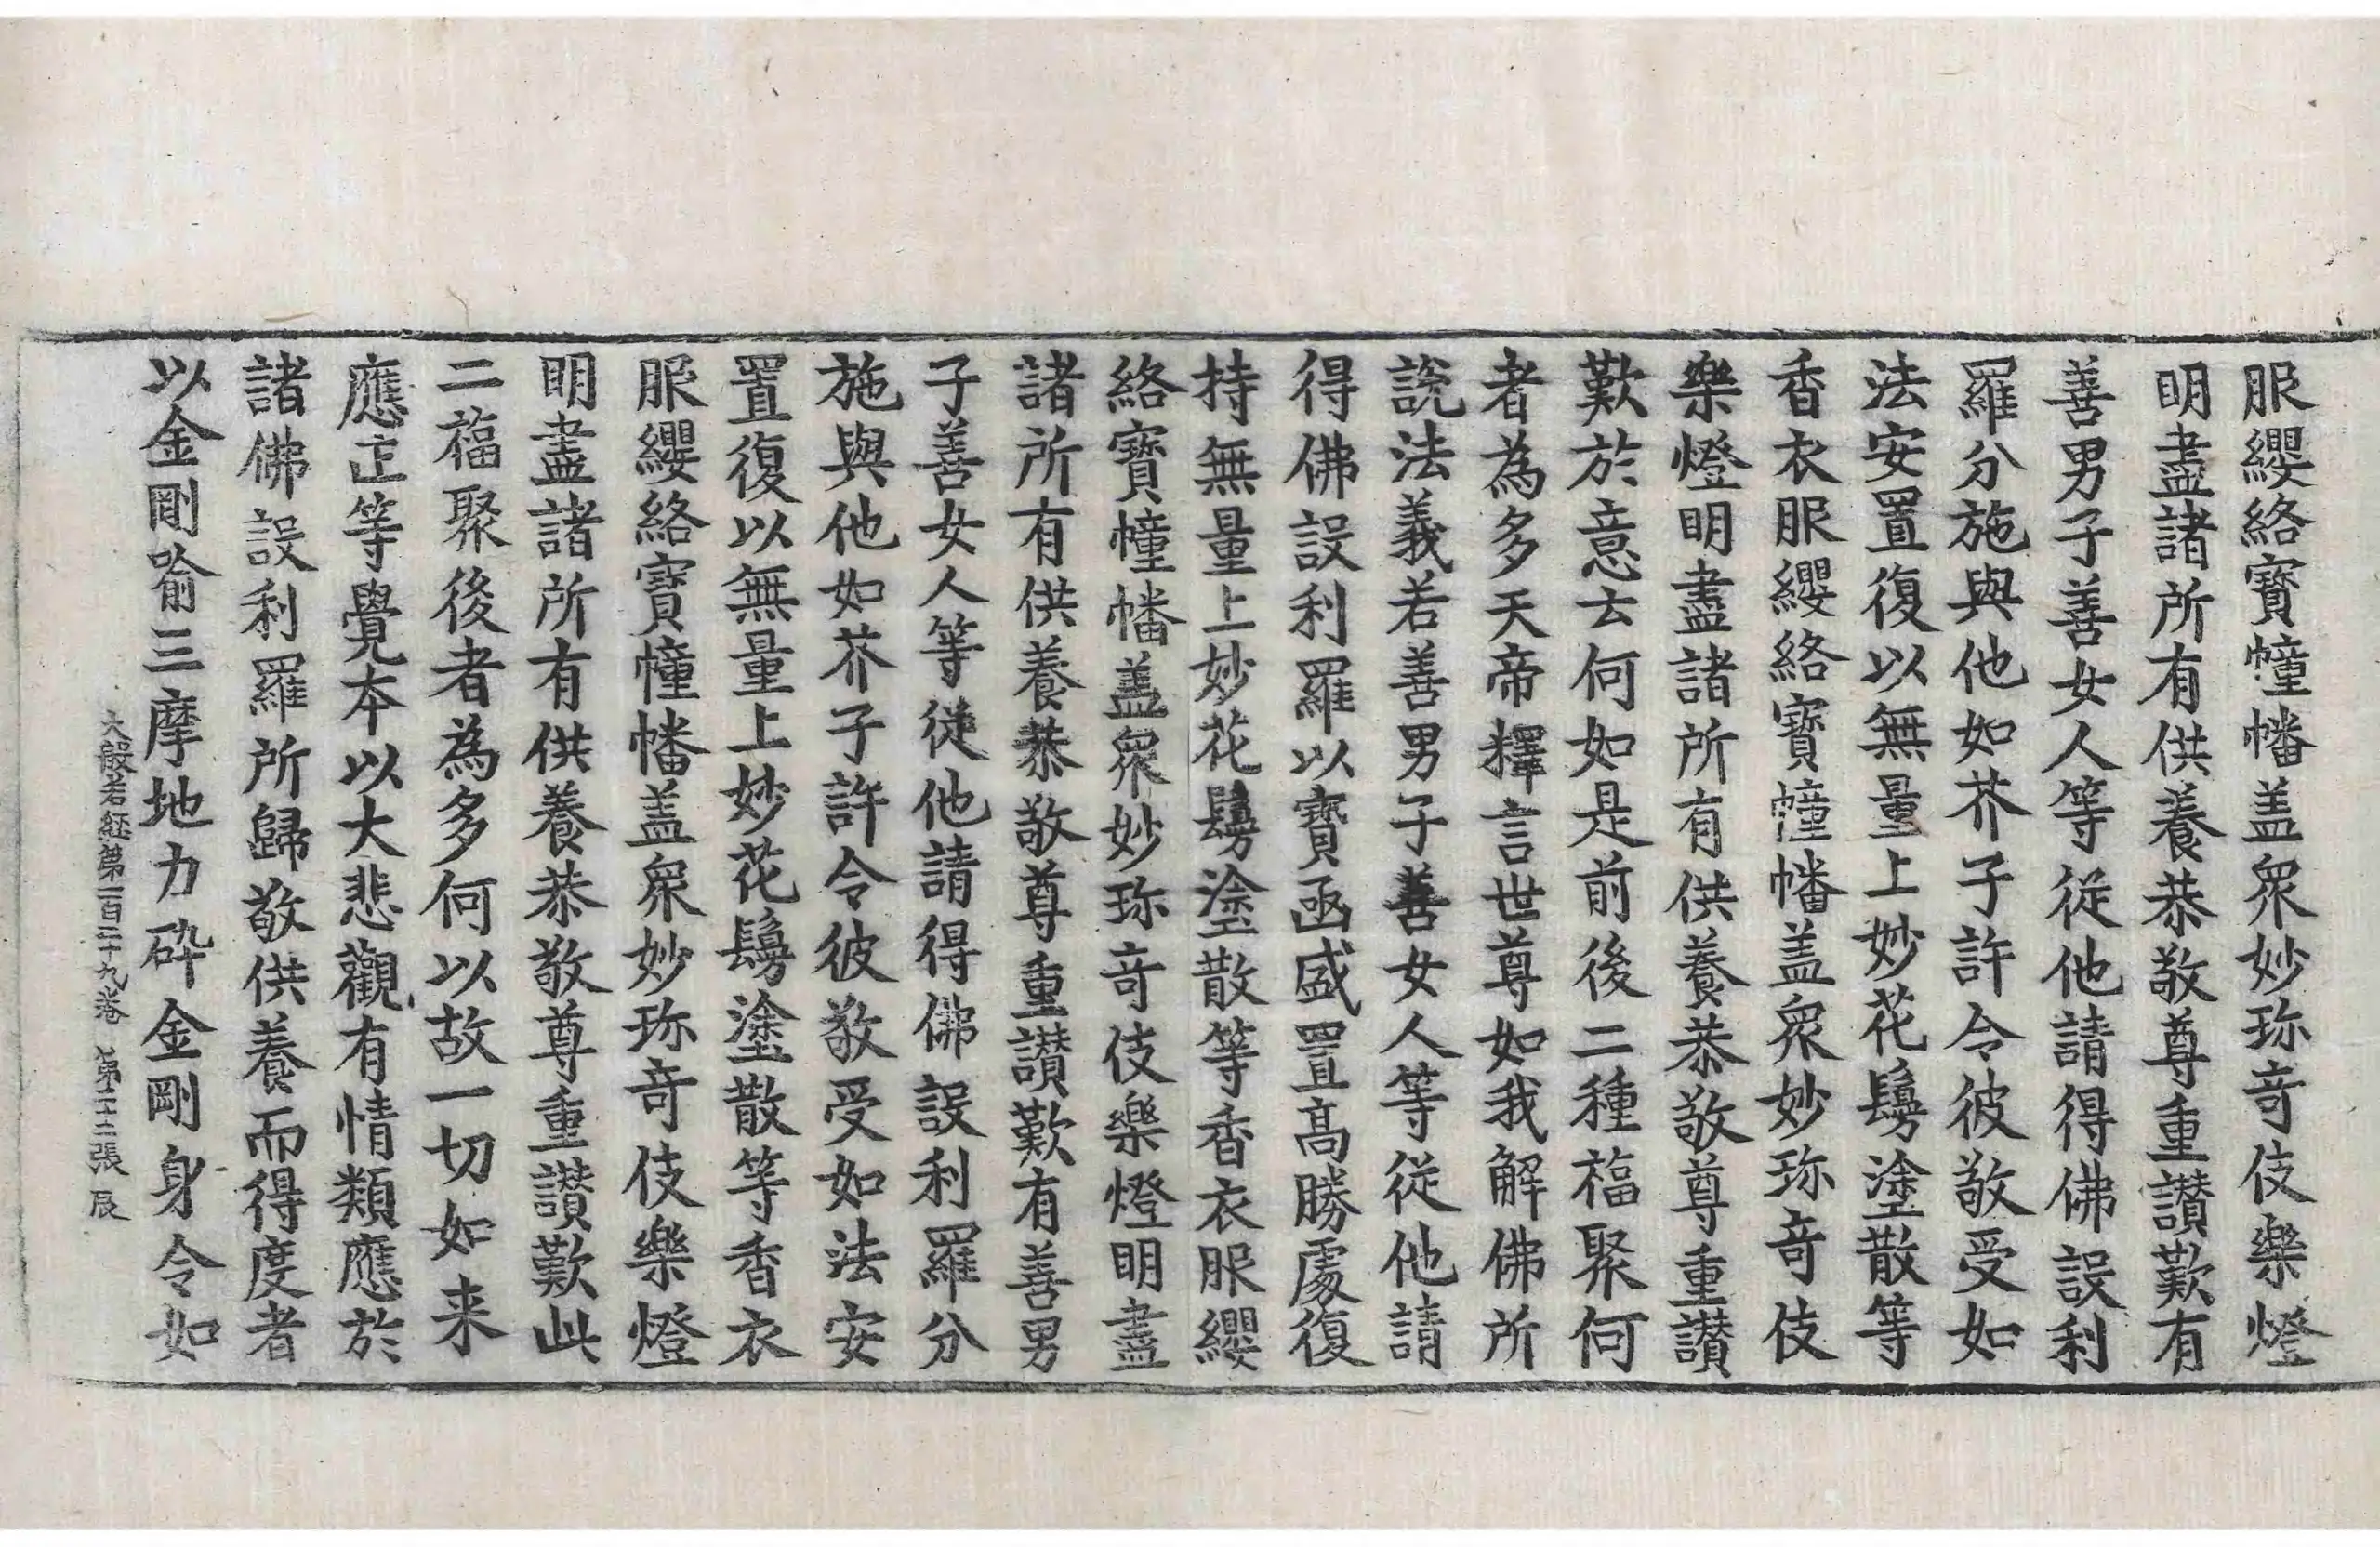 服纓絡寶幢幡盖衆妙珎竒伎樂燈
明盡諸所有供養恭敬尊重讃歎有
善男子善女人等從他請得佛設利
羅分施與他如芥子許令彼敬受如
法安置復以無量上妙花鬘塗散等
香衣服纓絡寶幢幡盖衆妙珎竒伎
樂燈明盡諸所有供養恭敬尊重讃
歎於意云何如是前後二種福聚何
者為多天帝釋言世尊如我解佛所
說法義若善男子善女人等從他請
得佛設利羅以寶凾盛置高勝處復
持無量上妙花鬘塗散等香衣服纓
絡寶幢幡盖衆妙珎竒伎樂燈明盡
諸所有供養恭敬尊重讃歎有善男
子善女人等從他請得佛設利羅分
施與他如芥子許令彼敬受如法安
置復以無量上妙花鬘塗散等香衣
服纓絡寶幢幡盖衆妙珎竒伎樂燈
明盡諸所有供養恭敬尊重讃歎此
二福聚後者為多何以故一切如来
應正等覺本以大悲觀有情類應於
諸佛設利羅所歸敬供養而得度者
以金剛喻三摩地力碎金剛身令如
大般若経第一百二十九卷 第二十二張 辰